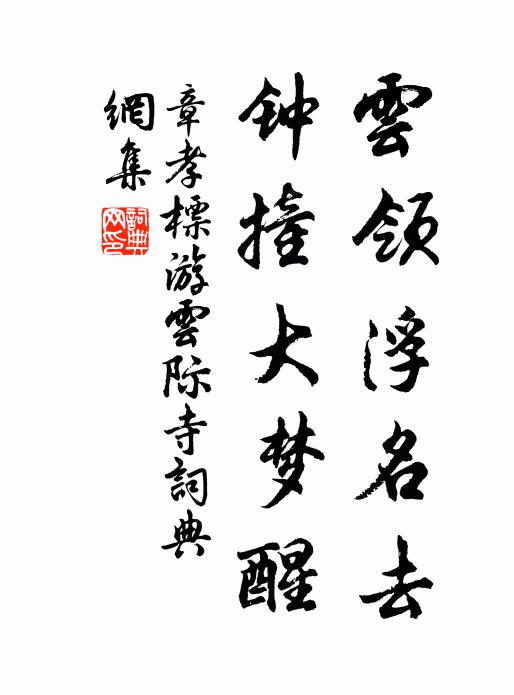 雲領浮名去
钟撞大梦醒
章孝標游雲际寺詞典
網集
詞典網印